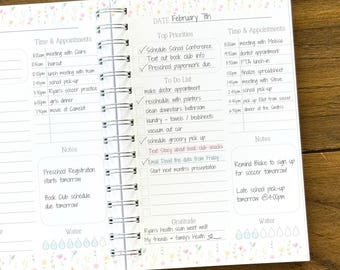 Time & Appointments
8:00am meeting with Claire
haircut
lunch meeting with team
school pick-up
Ryan's soccer practice
girls dinner
movie at Camelot
Notes
Preschool Registration
starts tomorrow!
Book Club schedule
due tomorrow!
Water
DATE: February 7th
Top Priorities
Schedule School Conference
Text out book club info
Preschool paperwork due
To Do List
make doctor appointment
reschedule with painters
clean downstairs bathroom
laundry - towels / bedsheets
vacuum out car
schedule grocery pick up
Text Stacy about book club snacks
Email David the data from Friday
Start next month's presentation
Gratitude
Ryan's health scan went well!
My friends & family's health
Time & Appointments
meeting with Melissa
doctor appointment
PTA lunch-in
finalize spreadsheet
meeting with Steve
school pick-up
Notes
Remind Blake to sign up
for soccer tomorrow!
Late school pick-up
tomorrow @4:00pm
Water